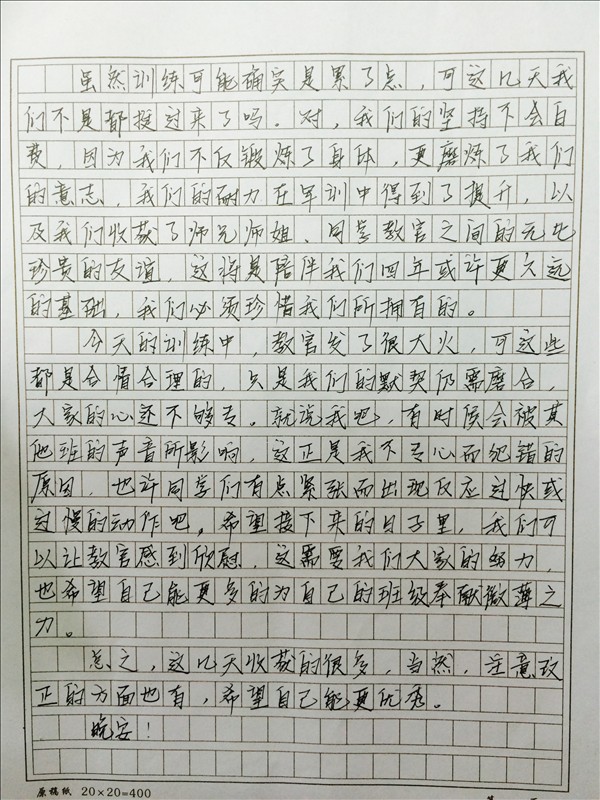 虽然训练可能确实是累了点，可这几天我
们不是都挺过来了吗。对，我们的坚持不会白
费，因为我们不仅锻炼了身体，更磨炼了我们
的意志，我们的耐力在军训中得到了提升，以
及我们收获了师兄师姐、同学教官之间的无比
珍贵的友谊，这将是陪伴我们四年或许更久远
的基础，我们必须珍惜我们所拥有的。
今天的训练中，教官发了很大火，可这些
都是合情合理的，只是我们的默契仍需磨合，
大家的心还不够专。就说我吧，有时候会被其
他班的声音所影响，这正是我不专心而犯错的
原因，也许同学们有点紧张而出现反应过快或
过慢的动作吧。希望接下来的日子里，我们可
以让教官感到欣慰，这需要我们大家的努力，
也希望自己能更多的为自己的班级奉献微薄之
力。
总之，这几天收获的很多，当然，注意改
正的方面也有，希望自己能更优秀。
晚安！
原稿纸 20×20=400